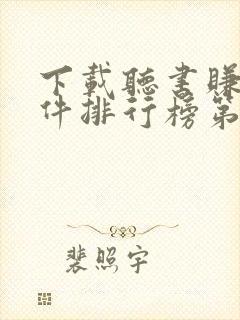 下載聽書賺
件排行榜第
裴照宇